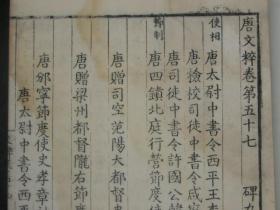 唐文粹卷第五十七　碑九
使相
唐太尉中書令西平王李
唐檢校司徒中書令咸寧
唐司徒中書令許國公韓
節制
唐四鎮北庭行營節度使
唐贈司空范陽大都督
唐贈梁州都督隴右節
唐邠寧節度使史孝章
唐太尉中書令西